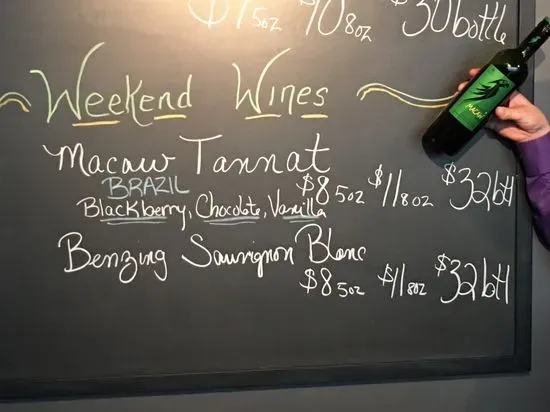 $7 5oz $10 8oz $30 bottle
Weekend Wines
MACAW
Macaw Tannat
BRAZIL
$8 5oz $11 8oz $32 btl
Blackberry, Chocolate, Vanilla
Benzing Sauvignon Blanc
$8 5oz $11 8oz $32 btl